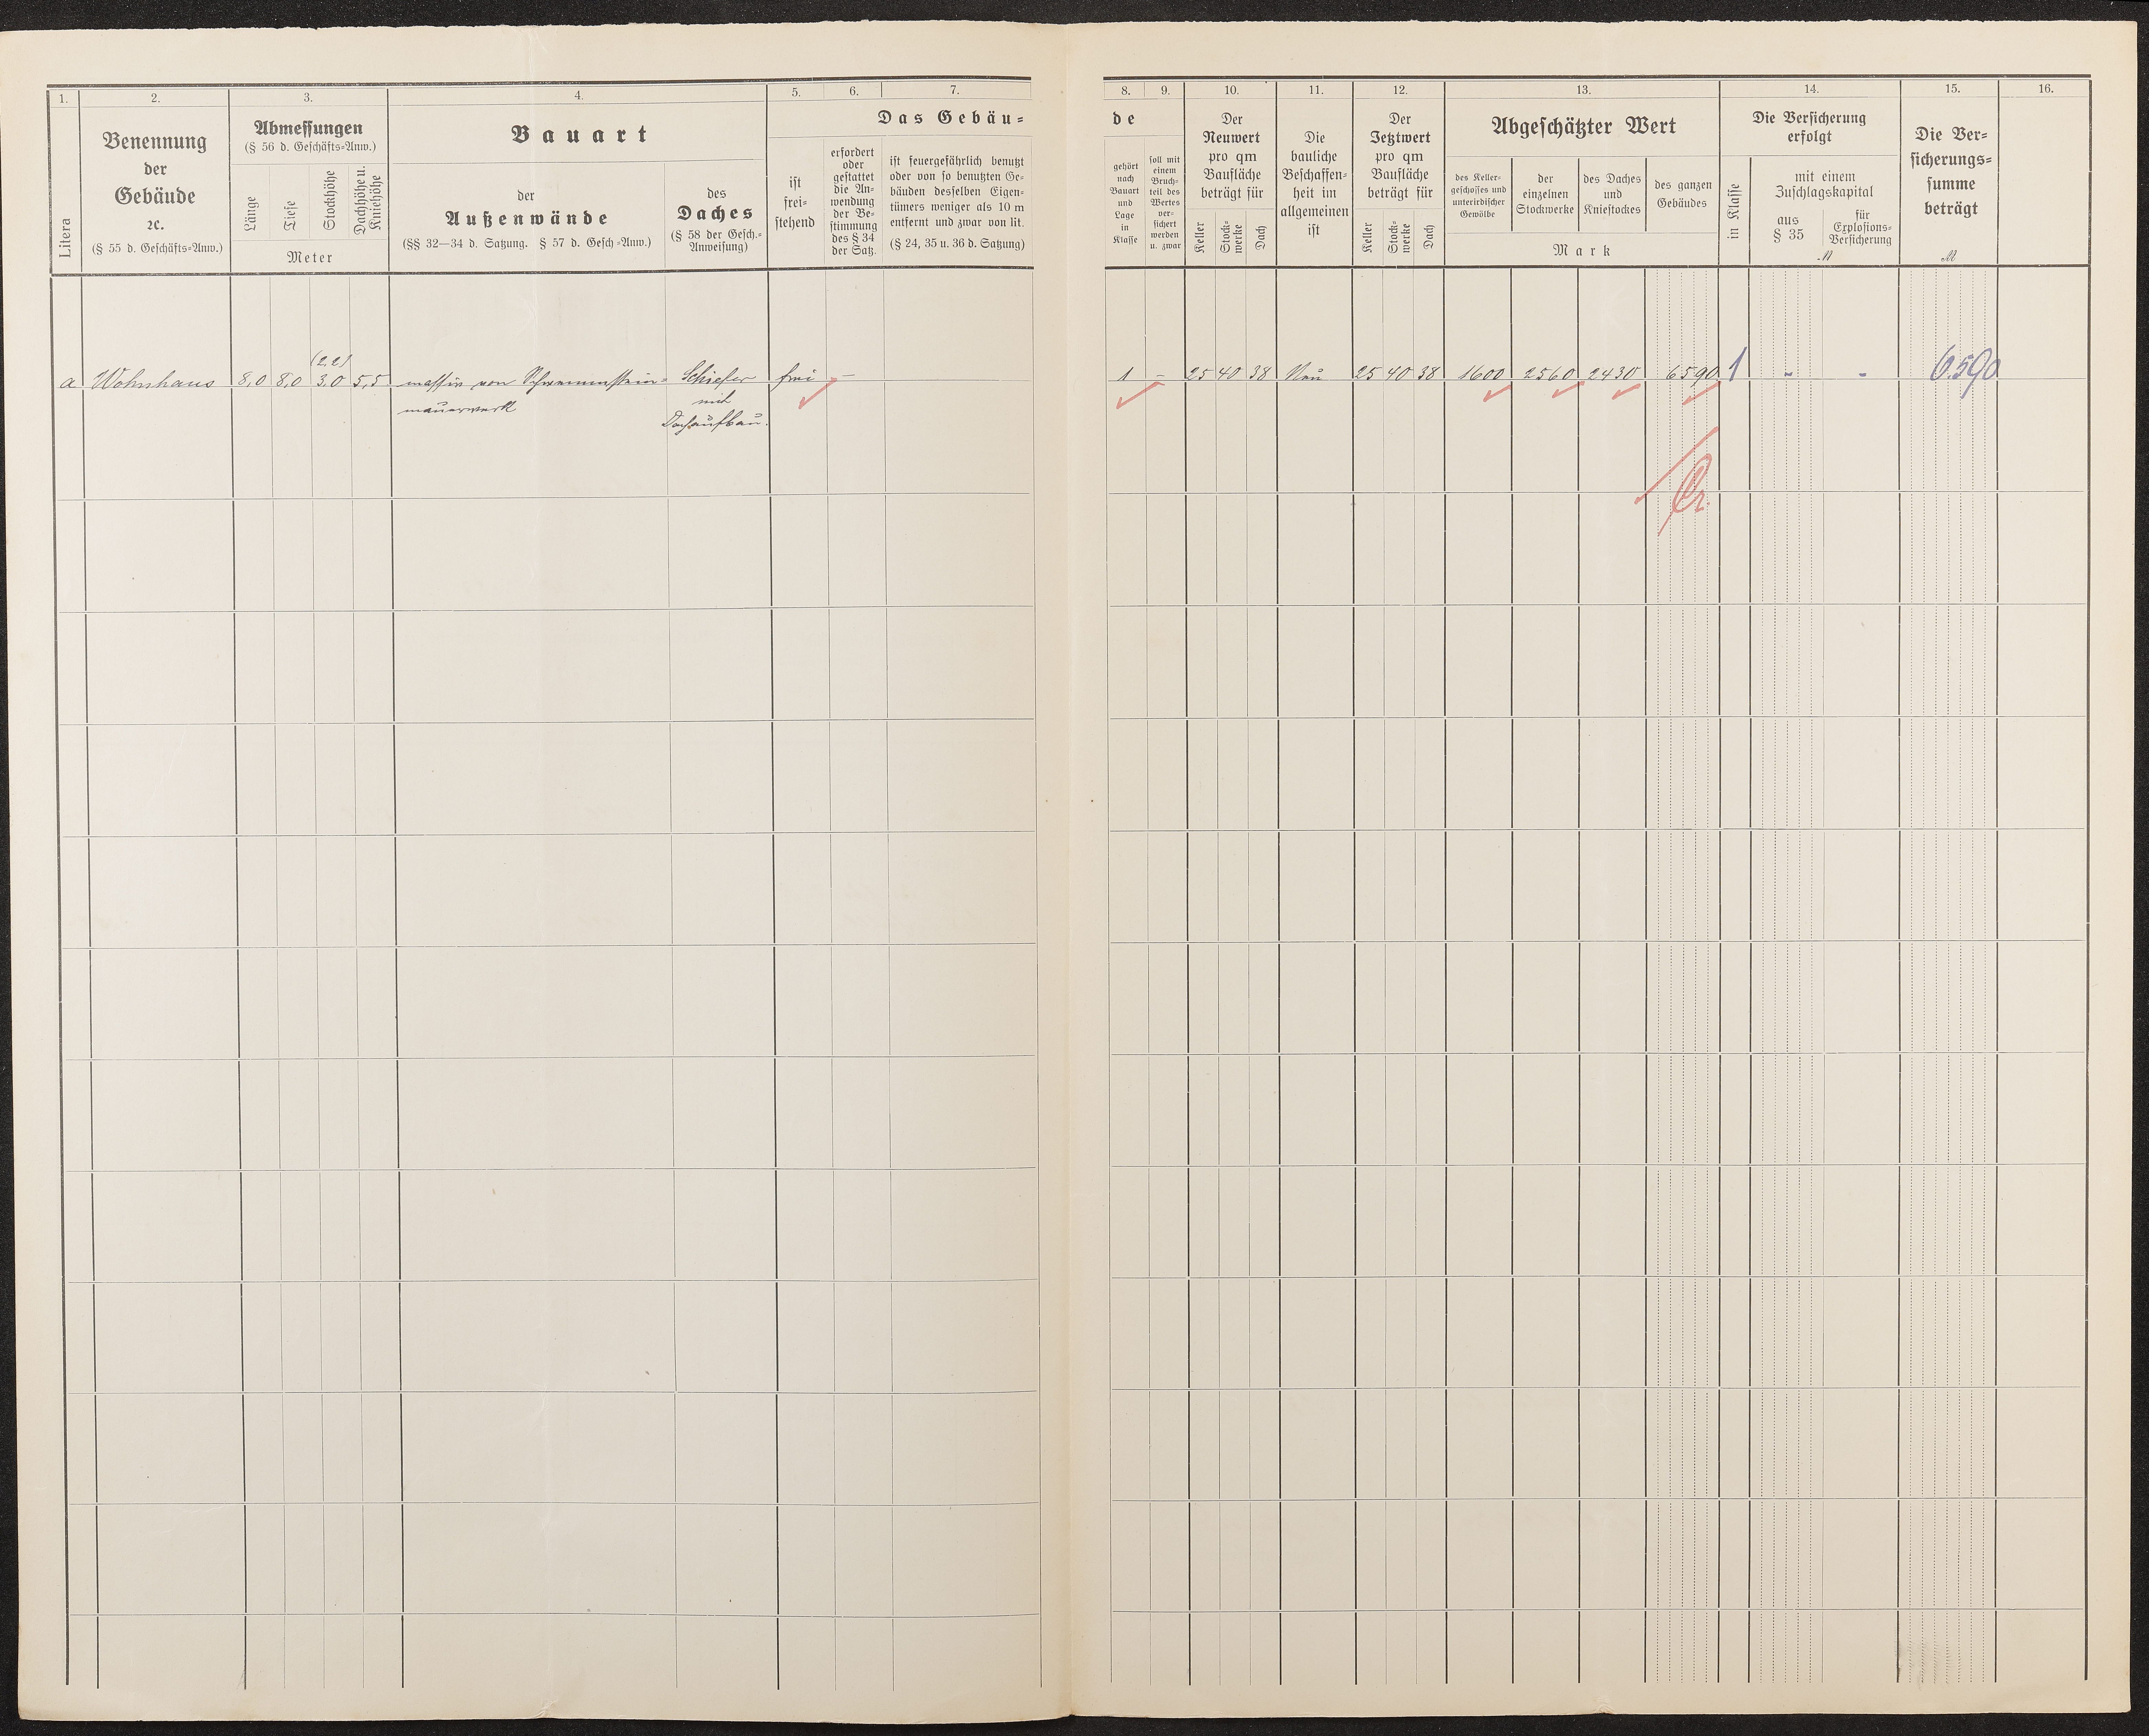 1.
2.
3.
4.
5.
6.
7.
Litera
Benennung
der
Gebäude
ꝛc.
(§ 55 d. Geschäfts=Anw.)
Abmessungen
(§ 56 d. Geschäfts=Anw.)
Länge
Tiefe
Stockhöhe
Dachhöhe u.
Kniehöhe
Meter
Bauart
der
Außenwände
(§§ 32—34 d. Satzung. § 57 d. Gesch=Anw.)
des
Daches
(§ 58 der Gesch.=
Anweisung)
Das Gebäu=
ist
frei=
stehend
erfordert
oder
gestattet
die An=
wendung
der Be=
stimmung
des § 34
der Satz.
ist feuergefährlich benutzt
oder von so benutzten Ge=
bäuden desselben Eigen=
tümers weniger als 10 m
entfernt und zwar von lit.
(§ 24, 35 u. 36 d. Satzung)
a Wohnhaus 8,0 8,0 (2,2) 3,0 5,5 massiv von Schwemmstein= Schiefer frei –
mauerwerk mit
Dachaufbau.
8.
9.
10.
11.
12.
13.
14.
15.
16.
de
gehört
nach
Bauart
und
Lage
in
Klasse
soll mit
einem
Bruch=
teil des
Wertes
ver=
sichert
werden
u. zwar
Der
Neuwert
pro qm
Baufläche
beträgt für
Keller
Stock=
werke
Dach
Die
bauliche
Beschaffen=
heit im
allgemeinen
ist
Der
Jetztwert
pro qm
Baufläche
beträgt für
Keller
Stock=
werke
Dach
Abgeschätzter Wert
des Keller=
geschosses und
unterirdischer
Gewölbe
der
einzelnen
Stockwerke
des Daches
und
Kniestockes
des ganzen
Gebäudes
Mark
Die Versicherung
erfolgt
in Klasse
mit einem
Zuschlagskapital
aus
§ 35
für
Explosions=
Versicherung
M
Die Ver=
sicherungs=
summe
beträgt
M
1 – 25 40 38 Neu 25 40 38 1600 2560 2430 6590 1 - - 6590